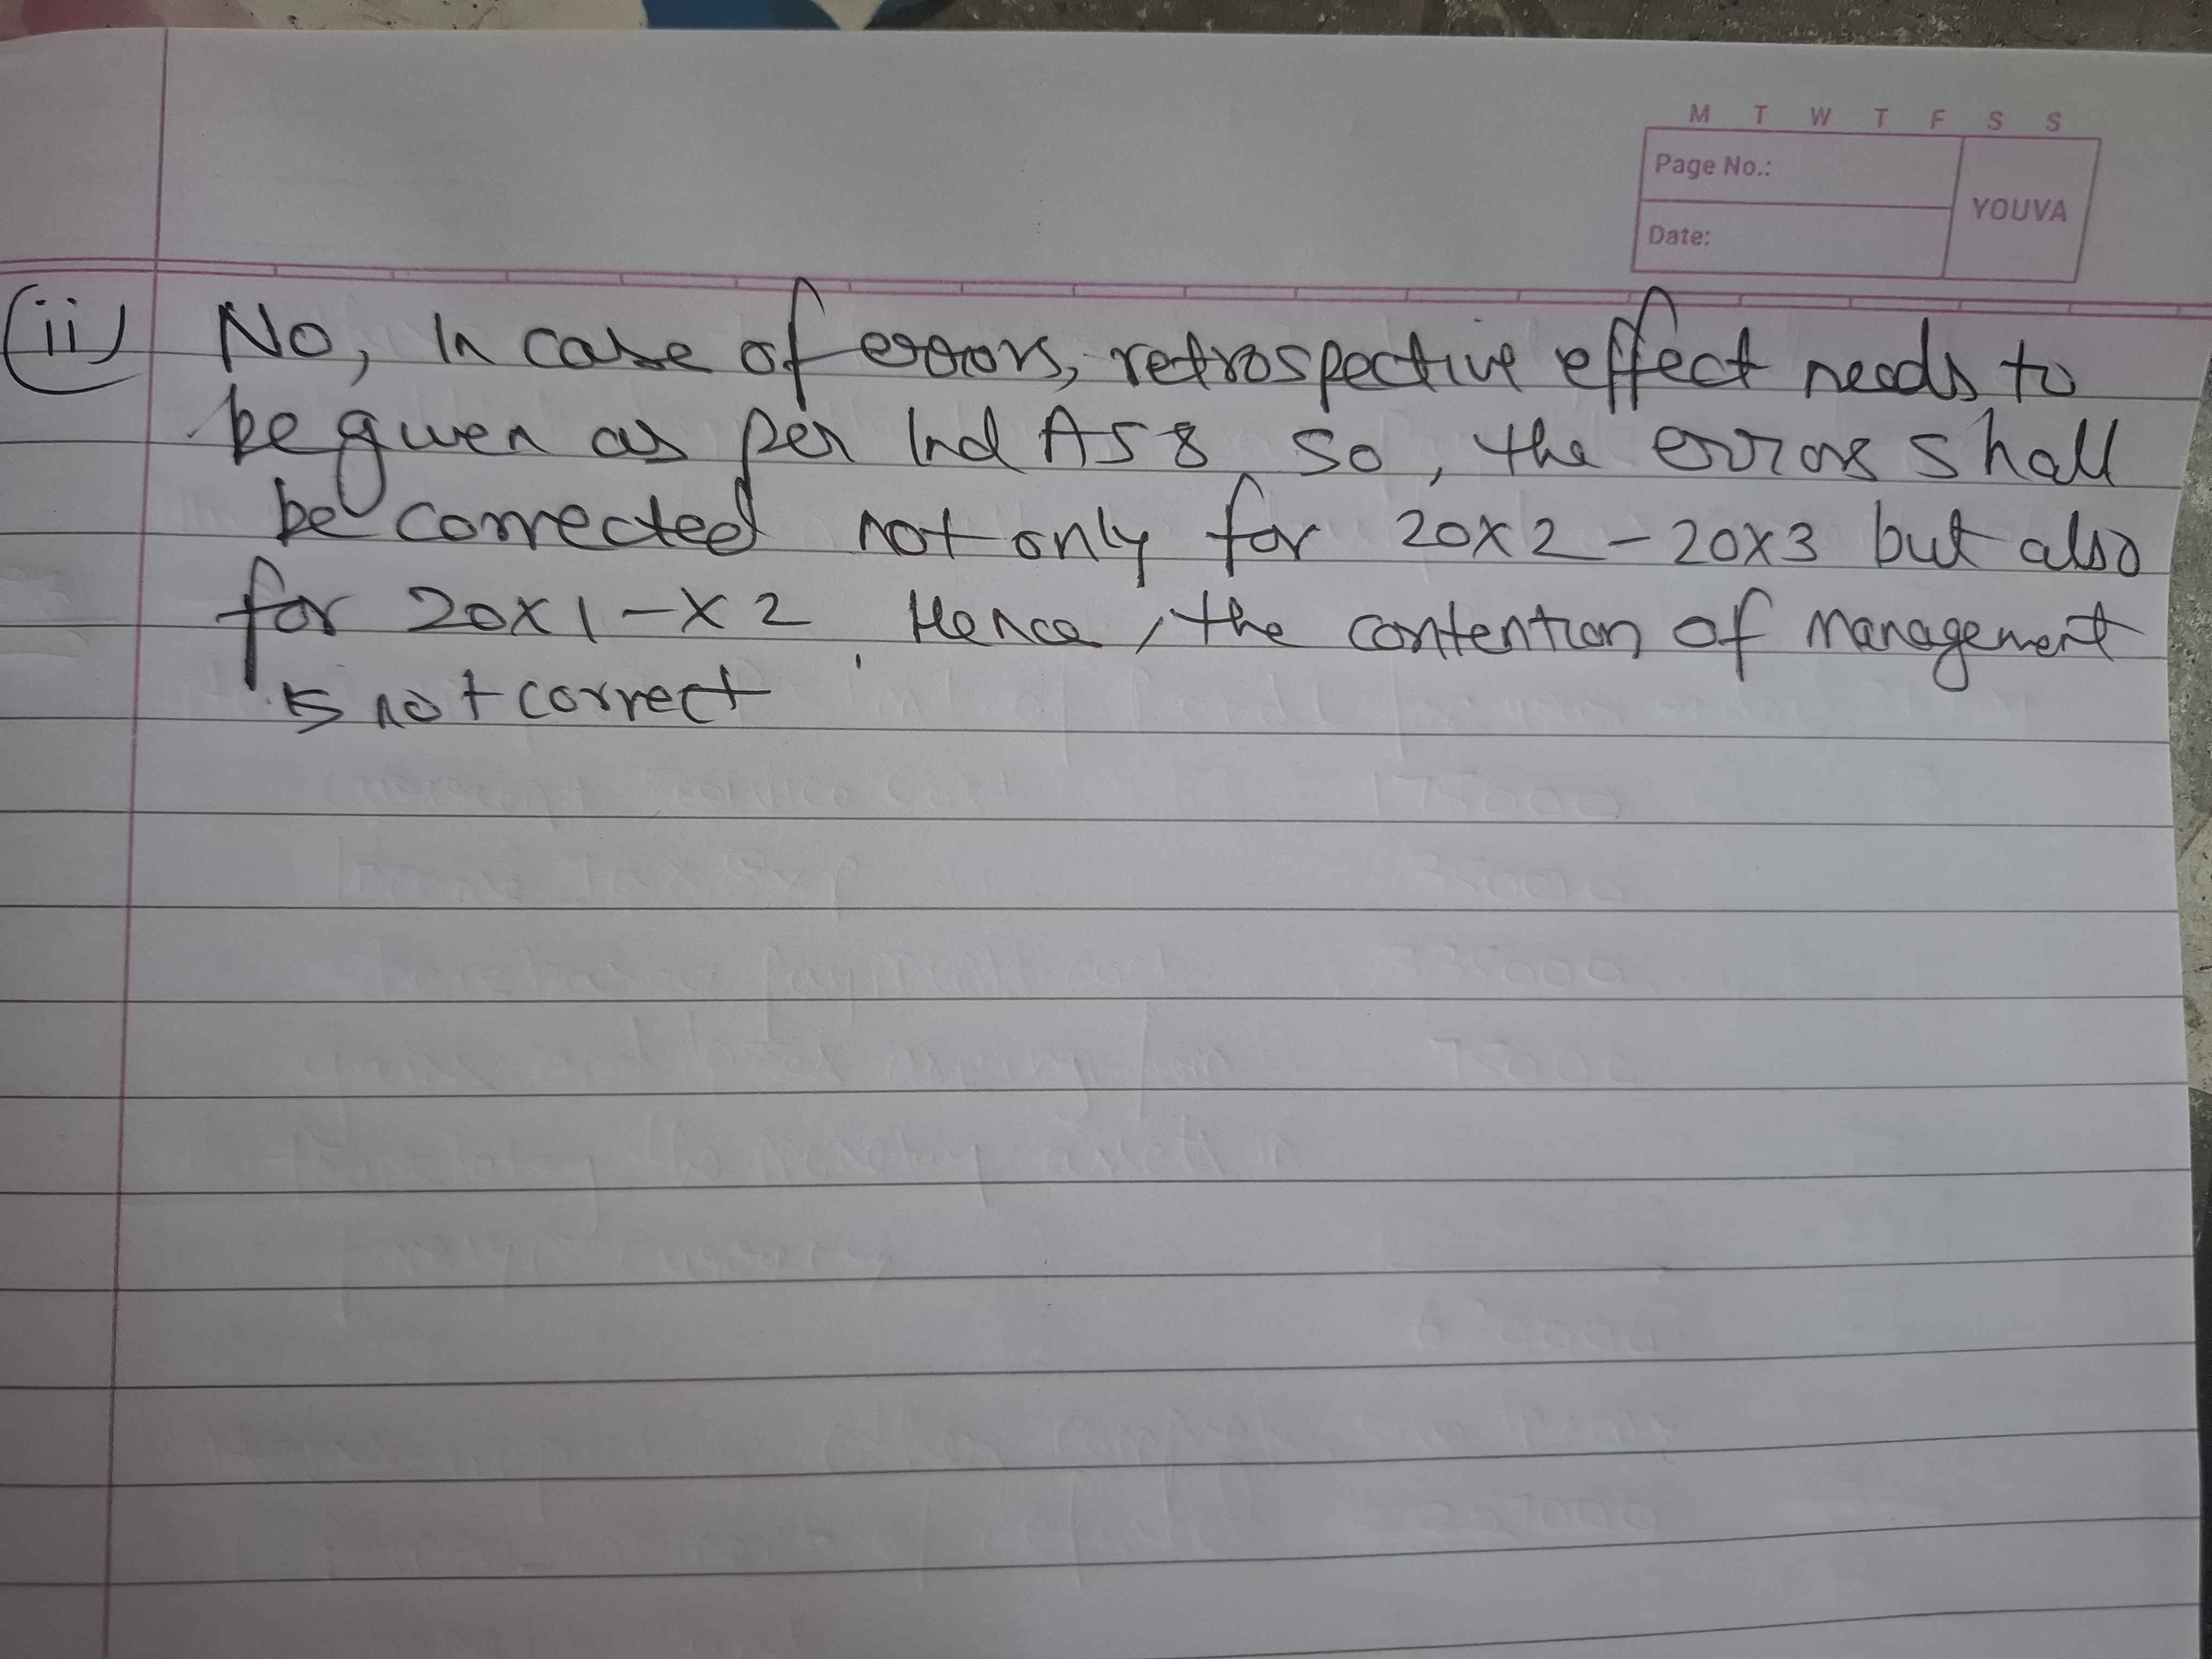 M T W T F S S
Page No.:
YOUVA
Date:
(ii) No, In case of errors, retrospective effect needs to
be given as per Ind AS 8 so, the errors shall
be corrected not only for 20X2-20X3 but also
for 20X1-X2. Hence, the contention of management
is not correct